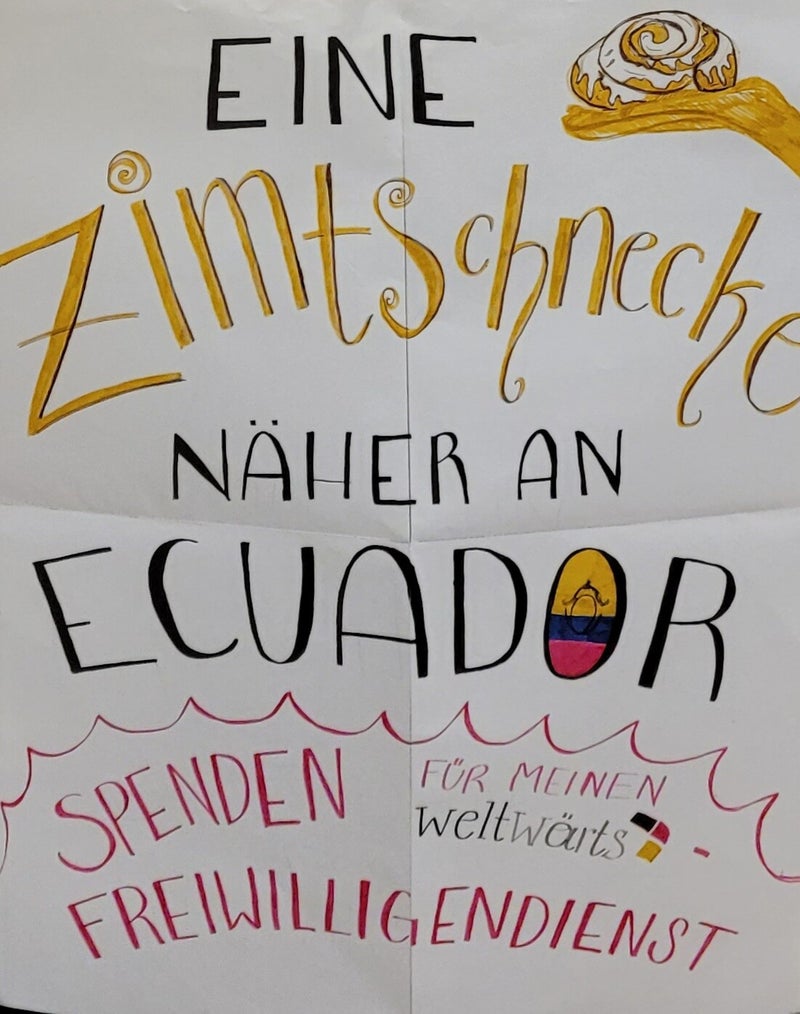 EINE
Zimtschnecke
NÄHER AN
ECUADOR
SPENDEN FÜR MEINEN
weltwärts -
FREIWILLIGENDIENST